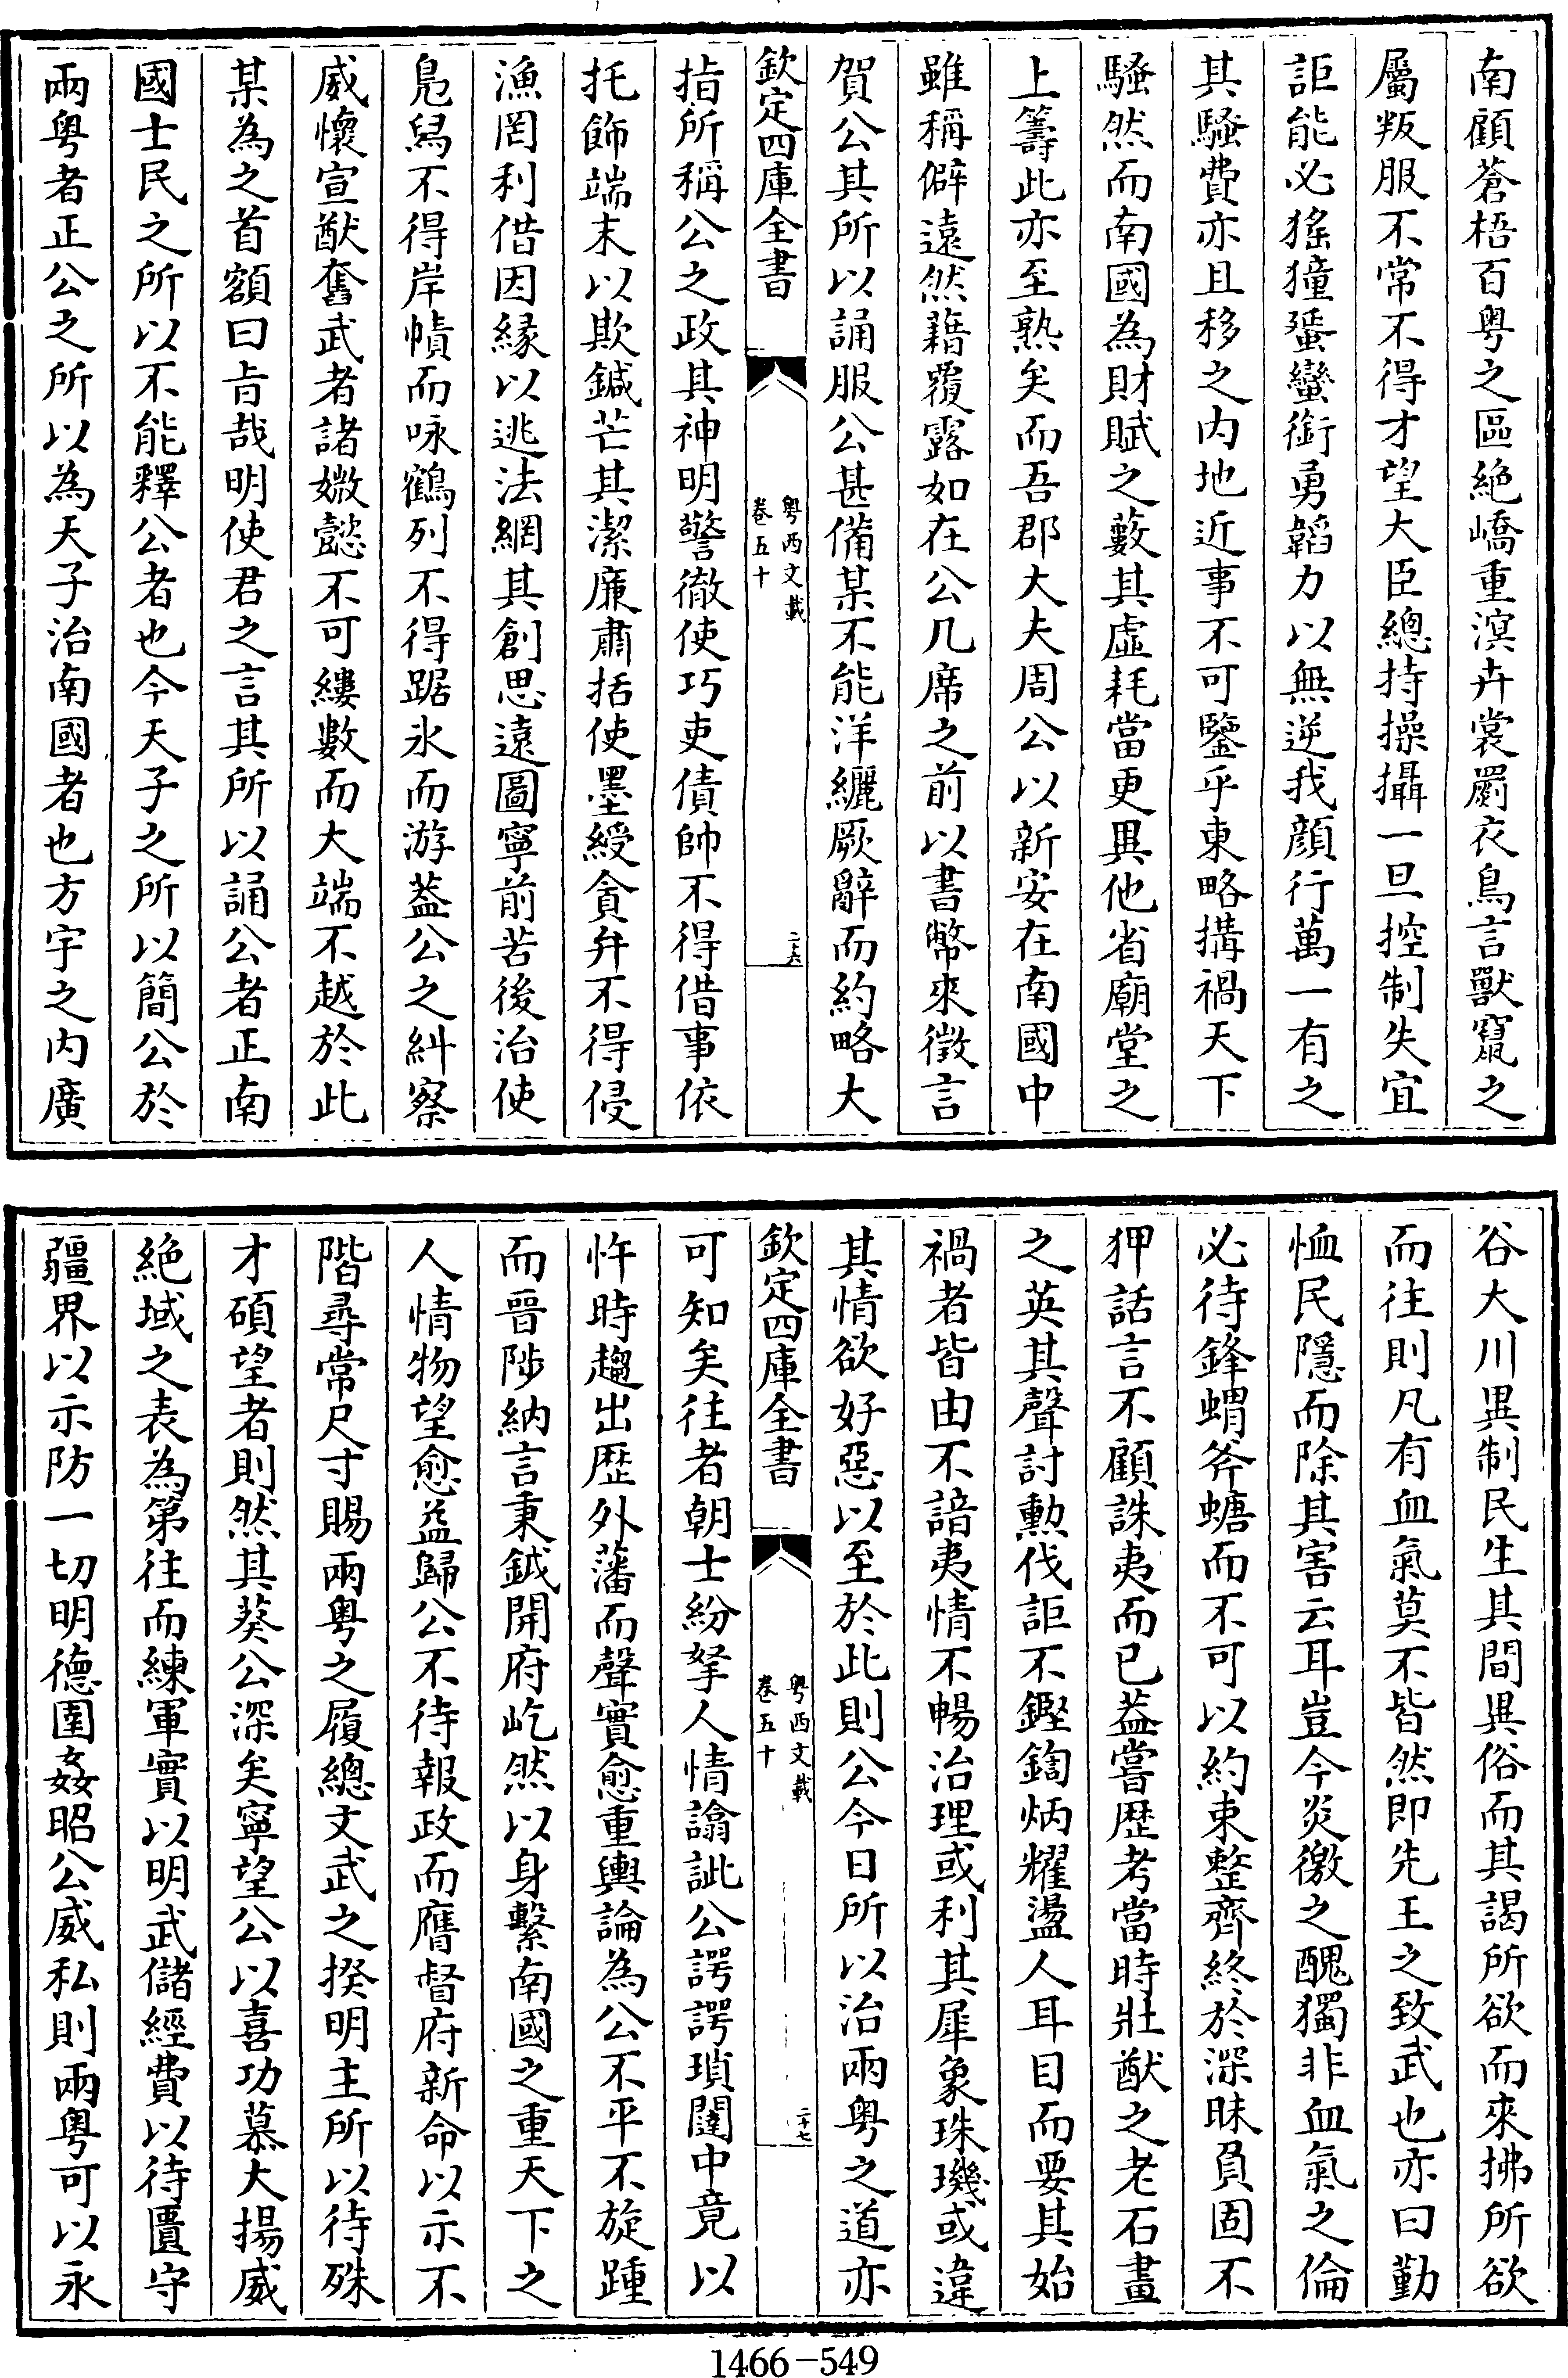 南顧蒼梧百粤之區絶嶠重溟卉裳罽衣鳥言獸竄之
屬叛服不常不得才望大臣總持操攝一旦控制失宜
詎能必猺獞蜑蠻銜勇韜力以無逆我顔行萬一有之
其騷費亦且移之内地近事不可鑒乎東略搆禍天下
騷然而南國為財賦之藪其虛耗當更異他省廟堂之
上籌此亦至熟矣而吾郡大夫周公以新安在南國中
雖稱僻遠然藉覆露如在公几席之前以書幣來徵言
賀公其所以誦服公甚備某不能洋纚厥辭而約略大
欽定四庫全書
粤西文載
卷五十
二十六
指所稱公之政其神明警徹使巧吏債帥不得借事依
托飾端末以欺鍼芒其潔廉肅括使墨綬貪弁不得侵
漁罔利借因緣以逃法網其創思遠圖寧前苦後治使
鳬舄不得岸幘而咏鶴列不得踞氷而游葢公之糾察
威懷宣猷奮武者諸媺懿不可縷數而大端不越於此
某為之首額曰㫖哉明使君之言其所以誦公者正南
國士民之所以不能釋公者也今天子之所以簡公於
兩粤者正公之所以為天子治南國者也方宇之内廣
谷大川異制民生其間異俗而其謁所欲而來拂所欲
而往則凡有血氣莫不皆然即先王之致武也亦曰勤
恤民隱而除其害云耳豈今炎徼之醜獨非血氣之倫
必待鋒蝟斧螗而不可以約束整齊終於深昧負固不
狎話言不顧誅夷而已葢嘗歴考當時壯猷之老石畫
之英其聲討勲伐詎不鏗鍧炳耀盪人耳目而要其始
禍者皆由不諳夷情不暢治理或利其犀象珠璣或違
其情欲好惡以至於此則公今日所以治兩粤之道亦
欽定四庫全書
粤西文載
卷五十
二十七
可知矣往者朝士紛拏人情譸訿公諤諤瑣闥中竟以
忤時趨出歴外藩而聲實愈重輿論為公不平不旋踵
而晉陟納言秉鉞開府屹然以身繫南國之重天下之
人情物望愈益歸公不待報政而膺督府新命以示不
階尋常尺寸賜兩粤之履總文武之揆明主所以待殊
才碩望者則然其葵公深矣寧望公以喜功慕大揚威
絶域之表為第往而練軍實以明武儲經費以待匱守
疆界以示防一切明德圉姦昭公威私則兩粤可以永
1466-549